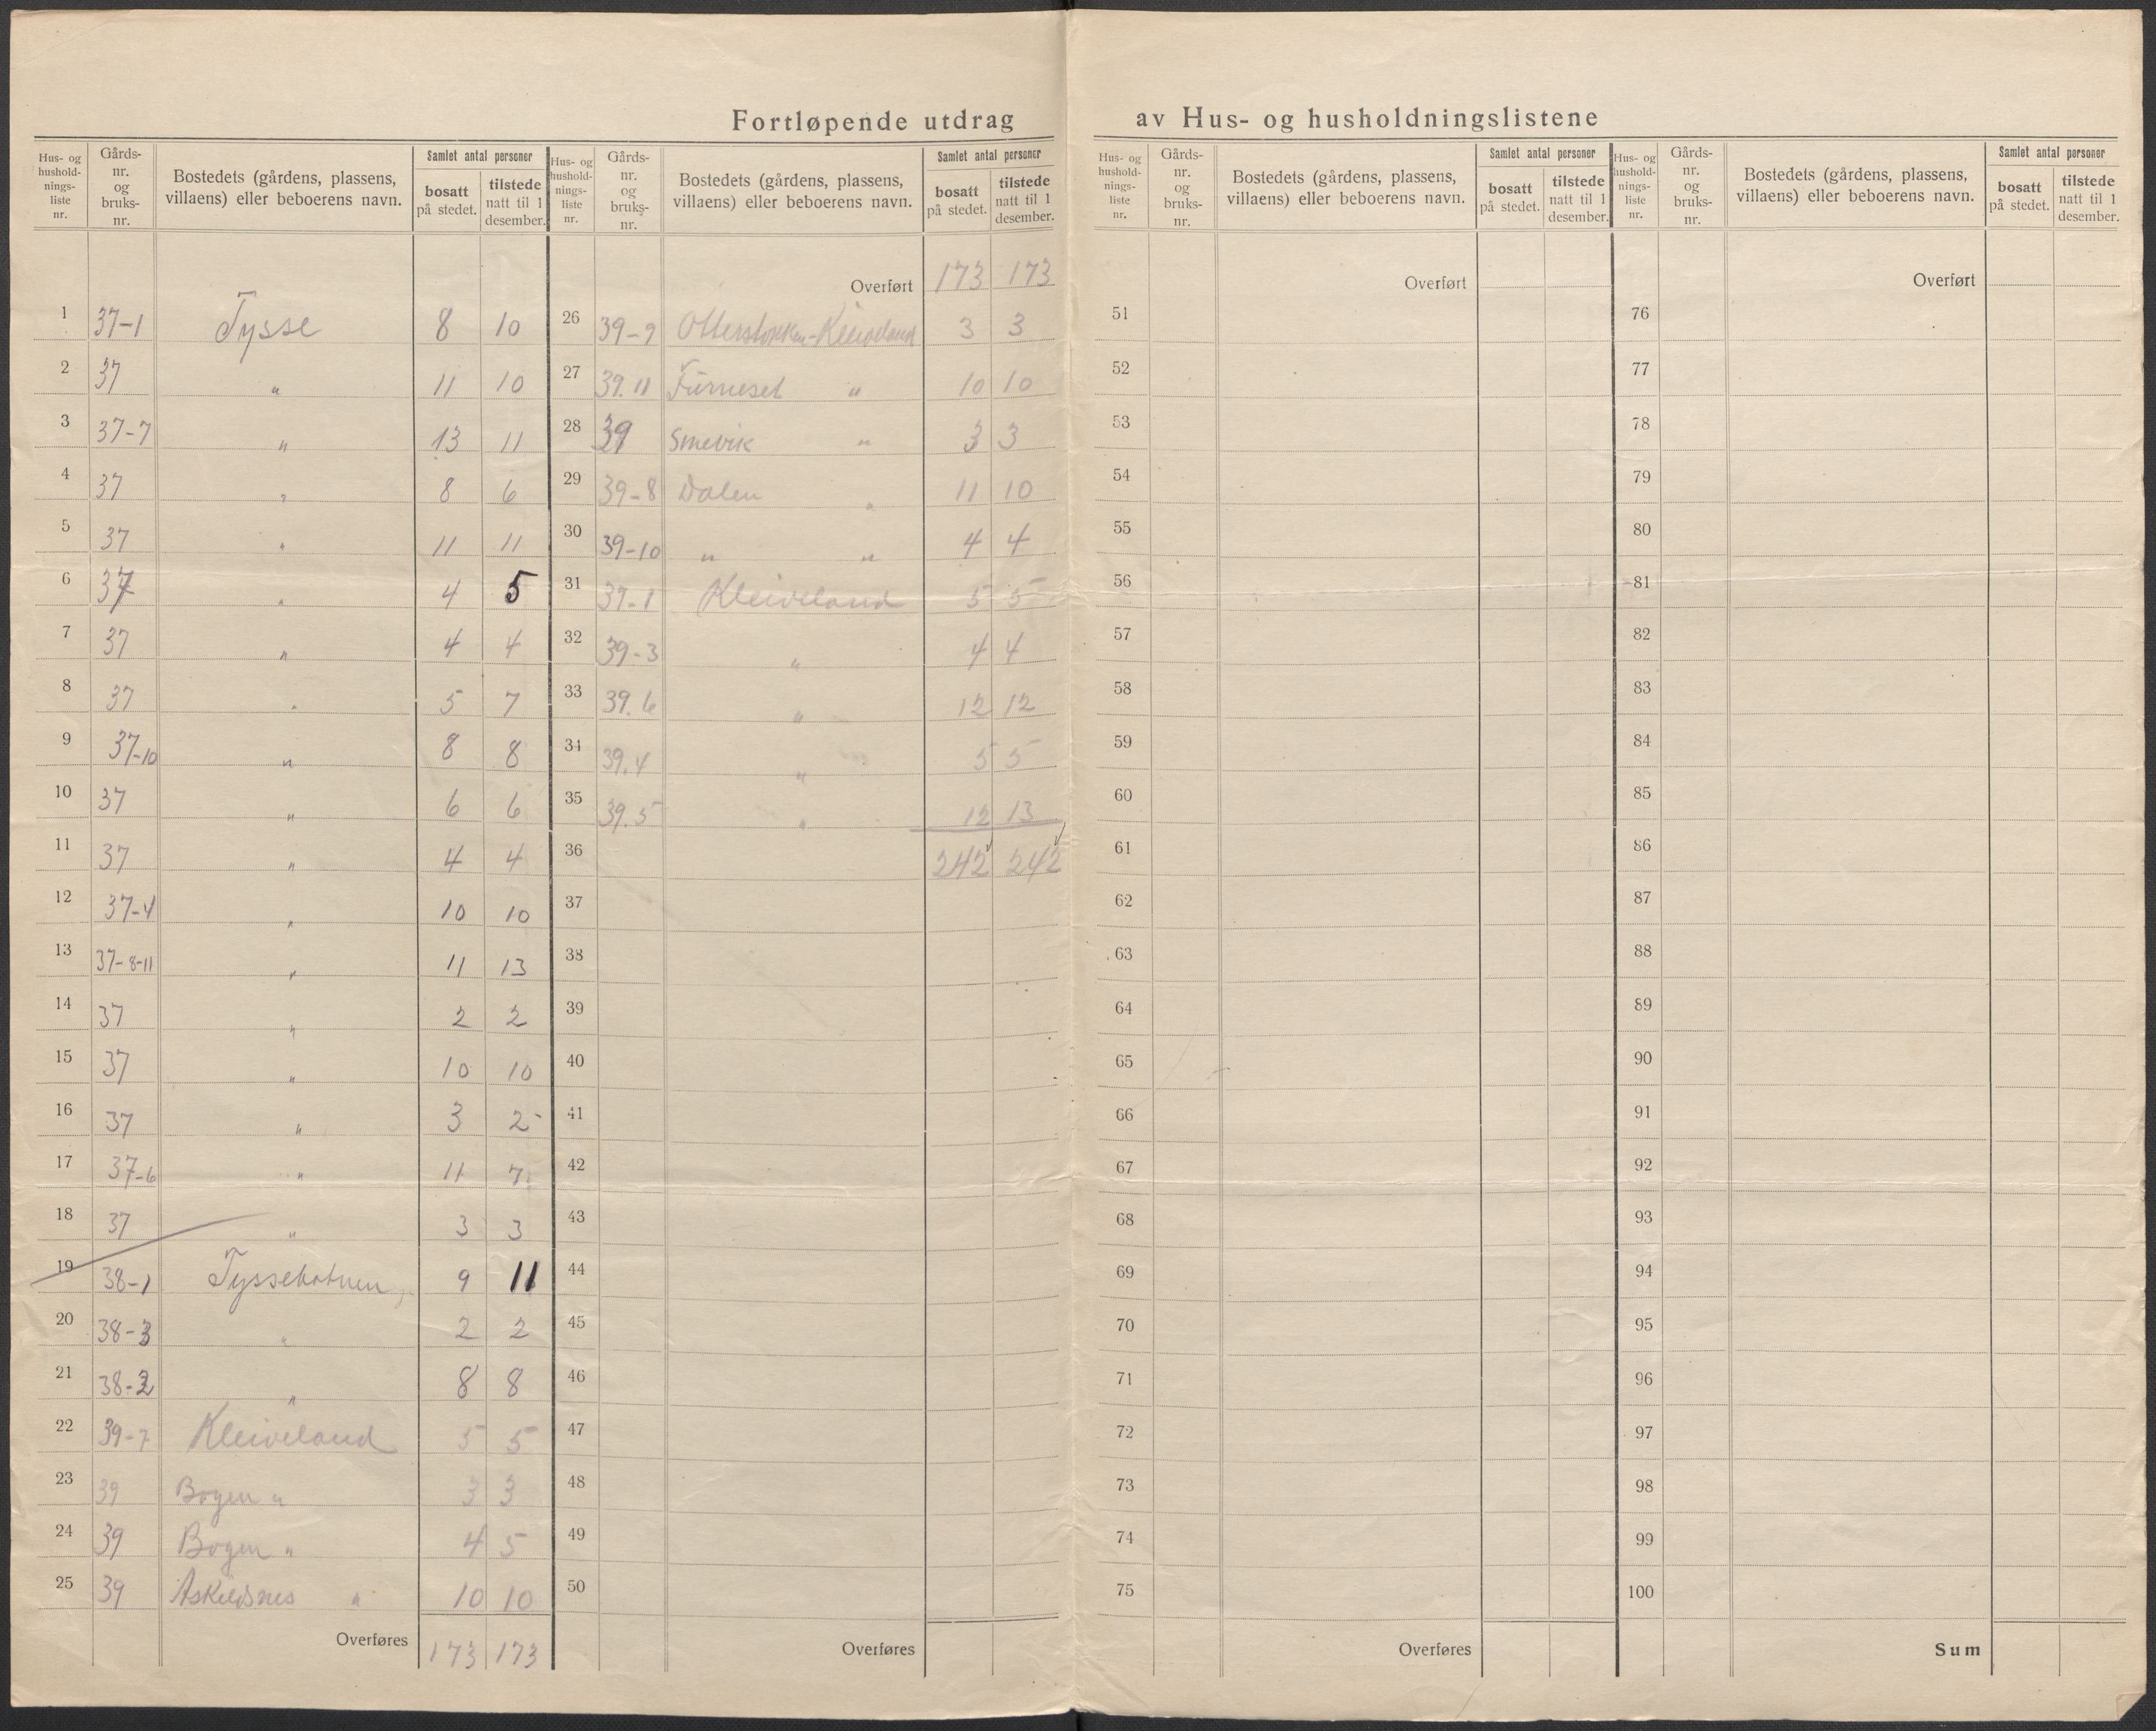 Fortløpende utdrag av Hus- og husholdningslistene
Hus- og hushold- nings- liste nr.
Gårds- nr. og bruks- nr.
Bostedets (gårdens, plassens, villaens) eller beboerens navn.
Samlet antal personer
bosatt på stedet.
tilstede natt til 1 desember.
1 37-1 Tysse 8 10
2 37 " 11 10
3 37-7 " 13 11
4 37 " 8 6
5 37 " 11 11
6 37 " 4 5
7 37 " 4 4
8 37 " 5 7
9 37-10 " 8 8
10 37 " 6 6
11 37 " 4 4
12 37-4 " 10 10
13 37-8-11 " 11 13
14 37 " 2 2
15 37 " 10 10
16 37 " 3 2
17 37-6 " 11 7
18 37 " 3 3
19 38-1 Tyssebotnen 9 11
20 38-3 " 2 2
21 38-2 " 8 8
22 39-7 Kleiveland 5 5
23 39 Bogen " 3 3
24 39 Bogen " 4 5
25 39 Askeldsnes " 10 10
Overføres 173 173
Hus- og hushold- nings- liste nr.
Gårds- nr. og bruks- nr.
Bostedets (gårdens, plassens, villaens) eller beboerens navn.
Samlet antal personer
bosatt på stedet.
tilstede natt til 1 desember.
Overført 173 173
26 39-9 Otterstokken-Kleiveland 3 3
27 39.11 Furneset " 10 10
28 39 Smevik " 3 3
29 39-8 Dalen " 11 10
30 39-10 " " 4 4
31 39-1 Kleiveland 5 5
32 39-3 " 4 4
33 39.6 " 12 12
34 39.4 " 5 5
35 39.5 " 12 13
36 242 242
37
38
39
40
41
42
43
44
45
46
47
48
49
50
Overføres
Hus- og hushold- nings- liste nr.
Gårds- nr. og bruks- nr.
Bostedets (gårdens, plassens, villaens) eller beboerens navn.
Samlet antal personer
bosatt på stedet.
tilstede natt til 1 desember.
Overført
51
52
53
54
55
56
57
58
59
60
61
62
63
64
65
66
67
68
69
70
71
72
73
74
75
Overføres
Hus- og hushold- nings- liste nr.
Gårds- nr. og bruks- nr.
Bostedets (gårdens, plassens, villaens) eller beboerens navn.
Samlet antal personer
bosatt på stedet.
tilstede natt til 1 desember.
Overført
76
77
78
79
80
81
82
83
84
85
86
87
88
89
90
91
92
93
94
95
96
97
98
99
100
Sum